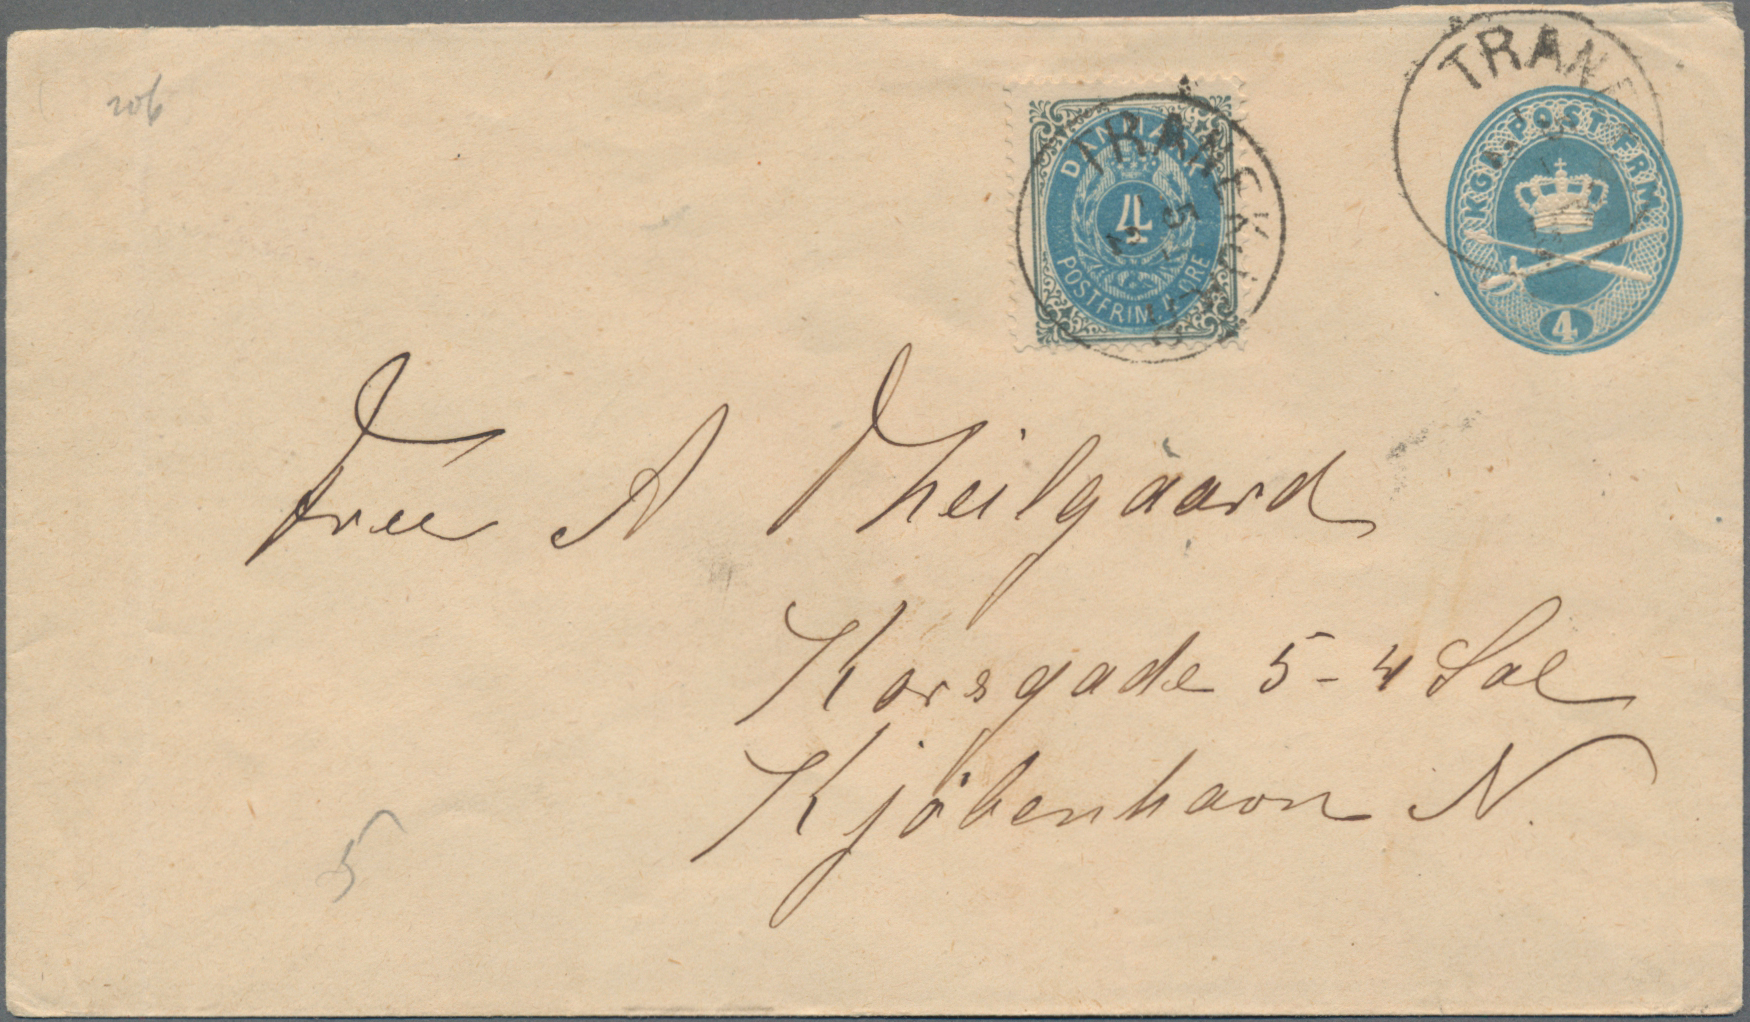 206
TRANE
KGL. POST FRM.
4
DANMARK
4
POSTFRIM. 4 ØRE
TRANEKJÆR
5
2
Frue A Theilgaard
Korsgade 5 - 4 Sal
Kjöbenhavn N.
5